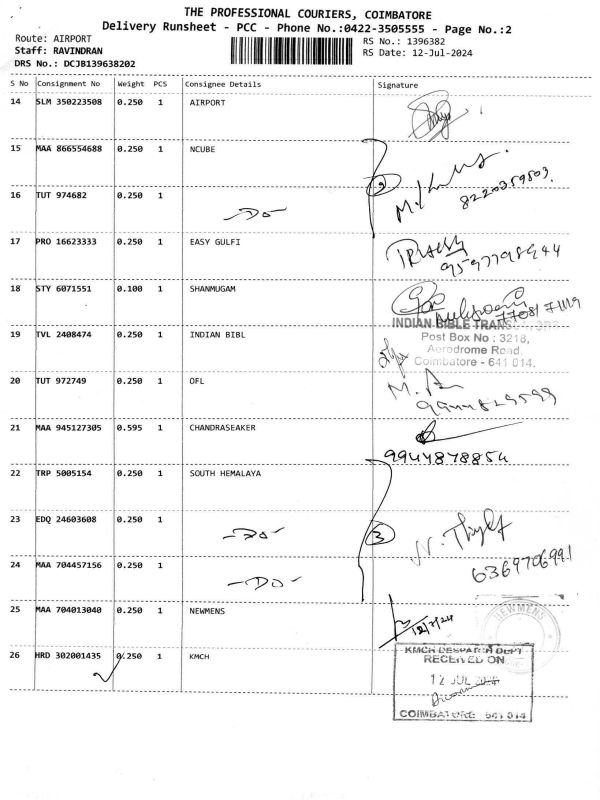 THE PROFESSIONAL COURIERS, COIMBATORE
Delivery Runsheet - PCC - Phone No.:0422-3505555 - Page No.:2
Route: AIRPORT
RS No.: 1396382
Staff: RAVINDRAN
RS Date: 12-Jul-2024
DRS No.: DCJB139638202
S No Consignment No Weight PCS Consignee Details Signature
14 SLM 350223508 0.250 1 AIRPORT
15 MAA 866554688 0.250 1 NCUBE
16 TUT 974682 0.250 1 -Do- 2 8220359803.
17 PRO 16623333 0.250 1 EASY GULFI
9597798944
18 STY 6071551 0.100 1 SHANMUGAM
INDIAN BIBLE
19 TVL 2408474 0.250 1 INDIAN BIBL Post Box No : 3218,
Aerodrome Road,
Coimbatore - 641 014.
20 TUT 972749 0.250 1 OFL
21 MAA 945127305 0.595 1 CHANDRASEAKER
9944878854
22 TRP 5005154 0.250 1 SOUTH HEMALAYA
23 EDQ 24603608 0.250 1 -Do- 3
24 MAA 704457156 0.250 1 -Do- 6369706991
25 MAA 704013040 0.250 1 NEWMENS 12/7/24 NEWMENS
26 HRD 302001435 0.250 1 KMCH
KMCH DESPATCH DEPT
RECEIVED ON
12 JUL
COIMBATORE 641 014